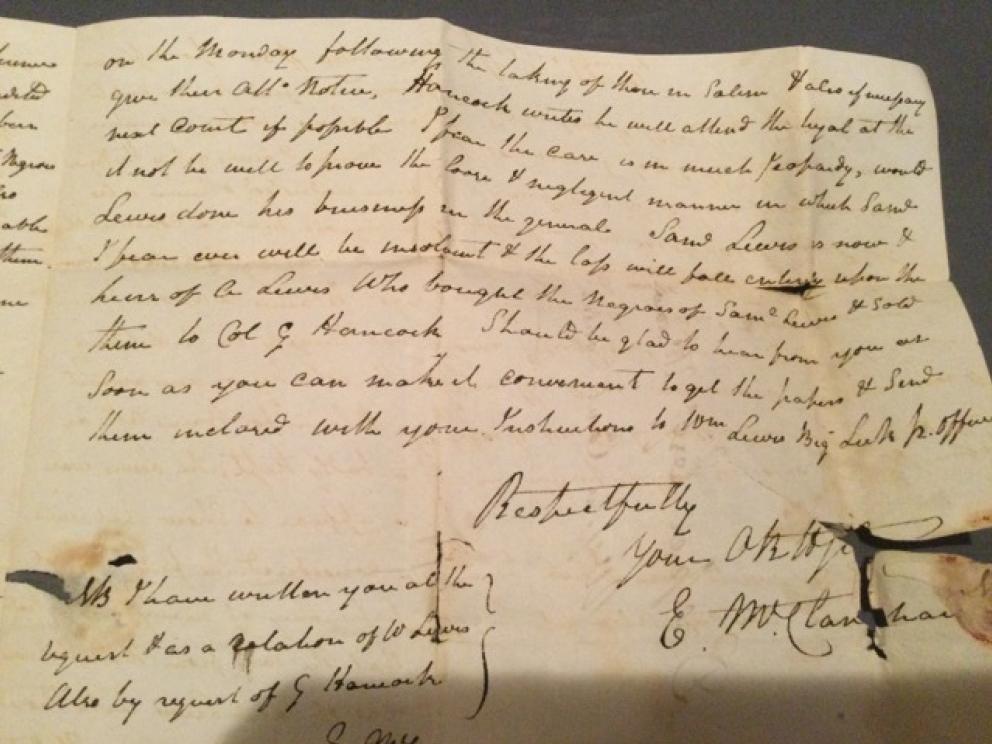 on the Monday following the taking of them in Salem & also if necessary
give their Atto Notice, Hancock writes he will attend the tryal at the
next Court if possible I fear the case is in much Jeopardy, would
it not be well to prove the loose & negligent manner in which Saml
Lewis done his business in the general Saml Lewis is now &
I fear ever will be insolvent & the loss will fall entirely upon the
heirs of A Lewis Who bought the Negroes of Saml Lewis & Sold
them to Col G Hancock Should be glad to hear from you as
Soon as you can make it convenient to get the papers & Send
them inclosed with your Instructions to Wm Lewis Big Lick P. Office
Respectfully
Your Ob
E McClanahan
NB I have written you at the
request & as a relation of W Lewis
Also by request of G Hancock
E Mc
negroes
able
them